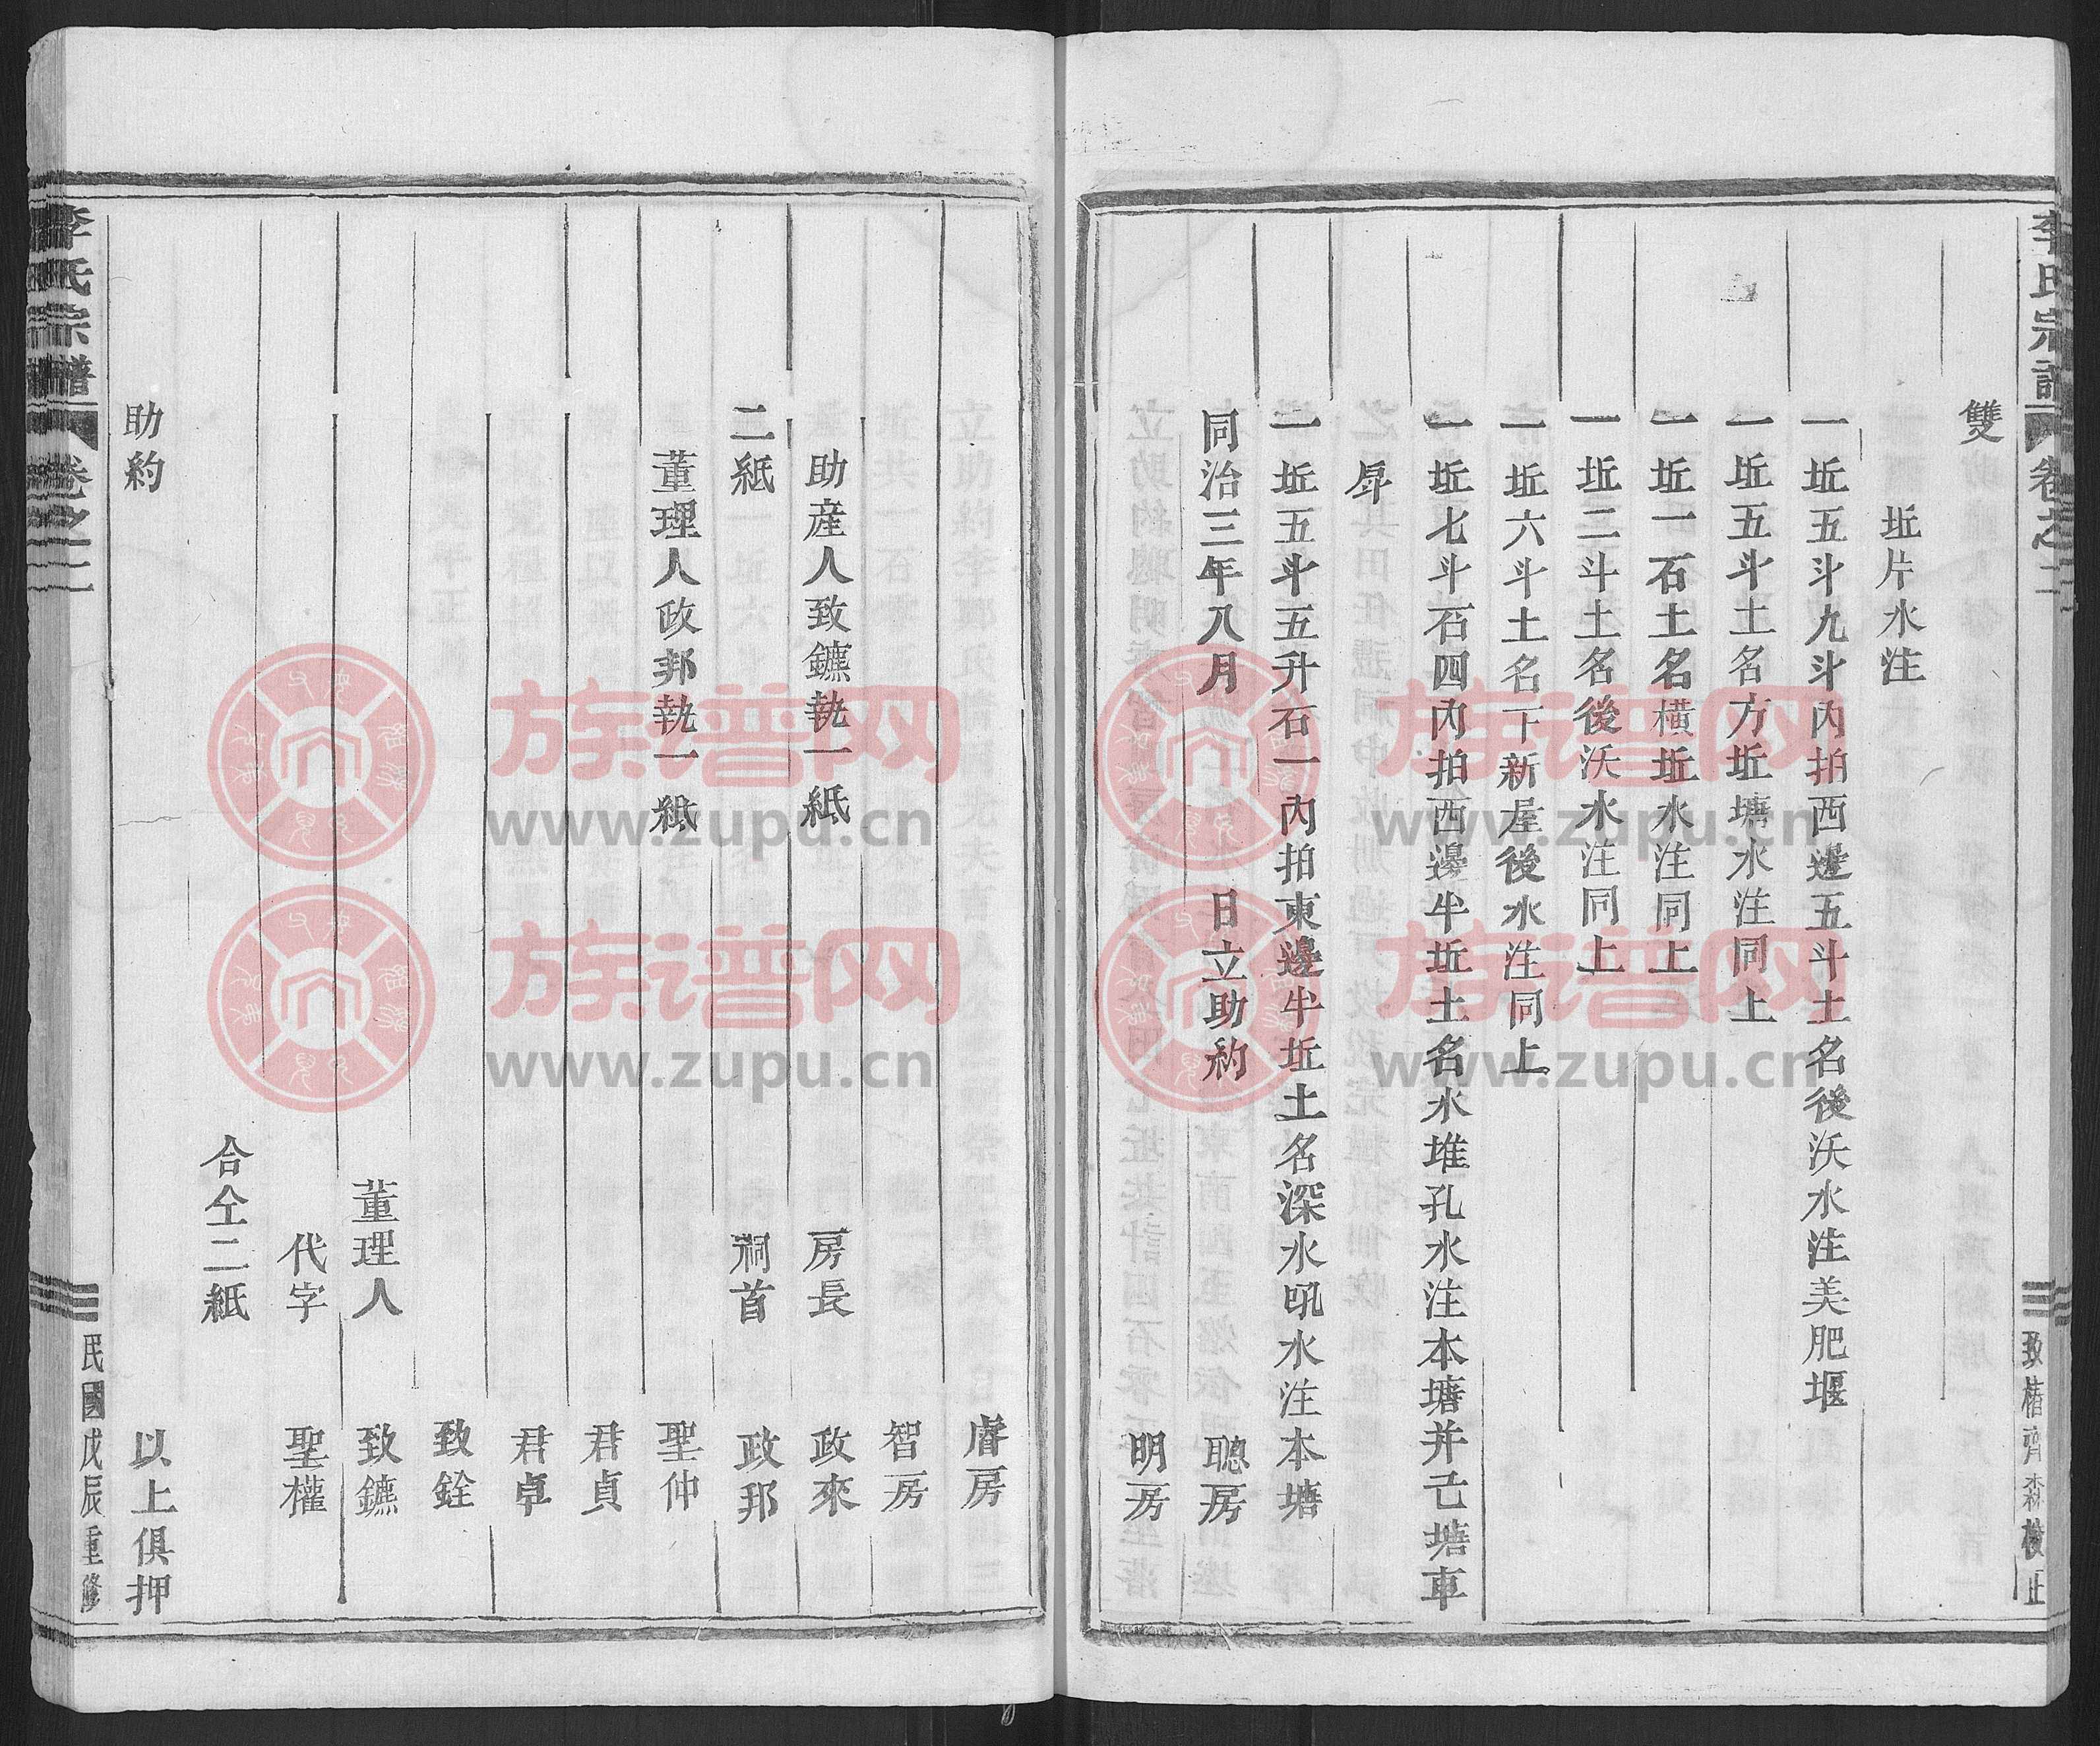 李氏宗譜 卷之二
致楷齊森校正
雙
坵片水注
一坵五斗九斗內拍西邊五斗土名後沃水注美肥堰
一坵五斗土名方坵塘水注同上
一坵一石土名橫坵水注同上
一坵二斗土名後沃水注同上
一坵六斗土名下新屋後水注同上
一坵七斗石四內拍西邊半坵土名水堆孔水注本塘并己塘車
戽
一坵五斗五升石一內拍東邊半坵土名深水吼水注本塘
同治三年八月 日立助約 聰房
明房
睿房
智房
助産人致鑣執一紙 房長 政來
二紙 祠首 政邦
董理人政邦執一紙 聖仲
君貞
君卓
致銓
董理人 致鑣
代字 聖權
合仝二紙
助約 以上俱押
李氏宗譜 卷之二 民國戊辰重修
族谱网
www.zupu.cn
族谱网
www.zupu.cn
族谱网
www.zupu.cn
族谱网
www.zupu.cn